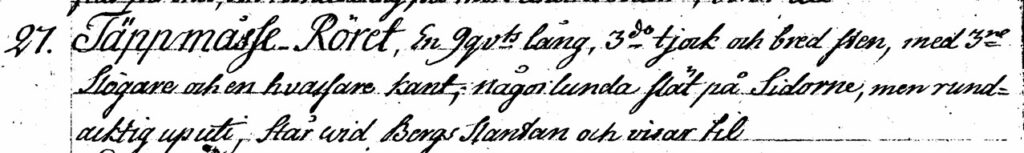 27. Täppmåsse-Röret, En 9 qvts lång, 3do tjock och bred sten, med 3ne
slögare och en hvassare kant, någorlunda slät på Sidorne, men rund-
aktig uputi, står wid Bergs Kantan och visar til